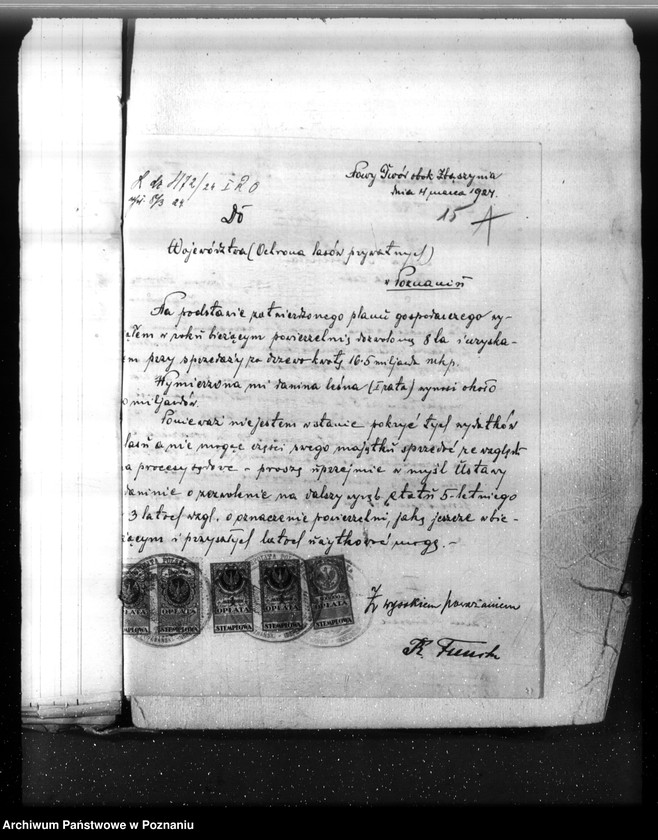 Nowy Dwór obok Zbąszynia
dnia 4 marca 1924.
L. dz 4172/24 I R O
8/3 24
15 A
Do
Województwa (Ochrona lasów prywatnych)
w Poznaniu
Na podstawie zatwierdzonego planu gospodarczego wy-
ałem w roku bieżącym powierzelnią dozwoloną 8 ha i uzyska-
em przy sprzedaży za drzewo kwotę 16.5 miljarda mkp.
Wymierzona mi danina leśna (I rata) wynosi około
miljardów.
Ponieważ niejestem wstanie pokryć tych wydatków
lasu a nie mogąc części swego majątku sprzedać ze względu
a procesy sądowe - proszę uprzejmie w myśl Ustawy
daninie o zezwolenie na dalszy wyrąb etatu 5-letniego
3 latach wzgl. o oznaczenie powierzelni, jaką jeszcze w bie-
żącym i przyszłych latach użytkować mogę. -
OPŁATA
STEMPLOWA
OPŁATA
STEMPLOWA
OPŁATA
STEMPLOWA
OPŁATA
STEMPLOWA
OPŁATA
STEMPLOWA
Z wysokiem poważaniem
K.
Archiwum Państwowe w Poznaniu